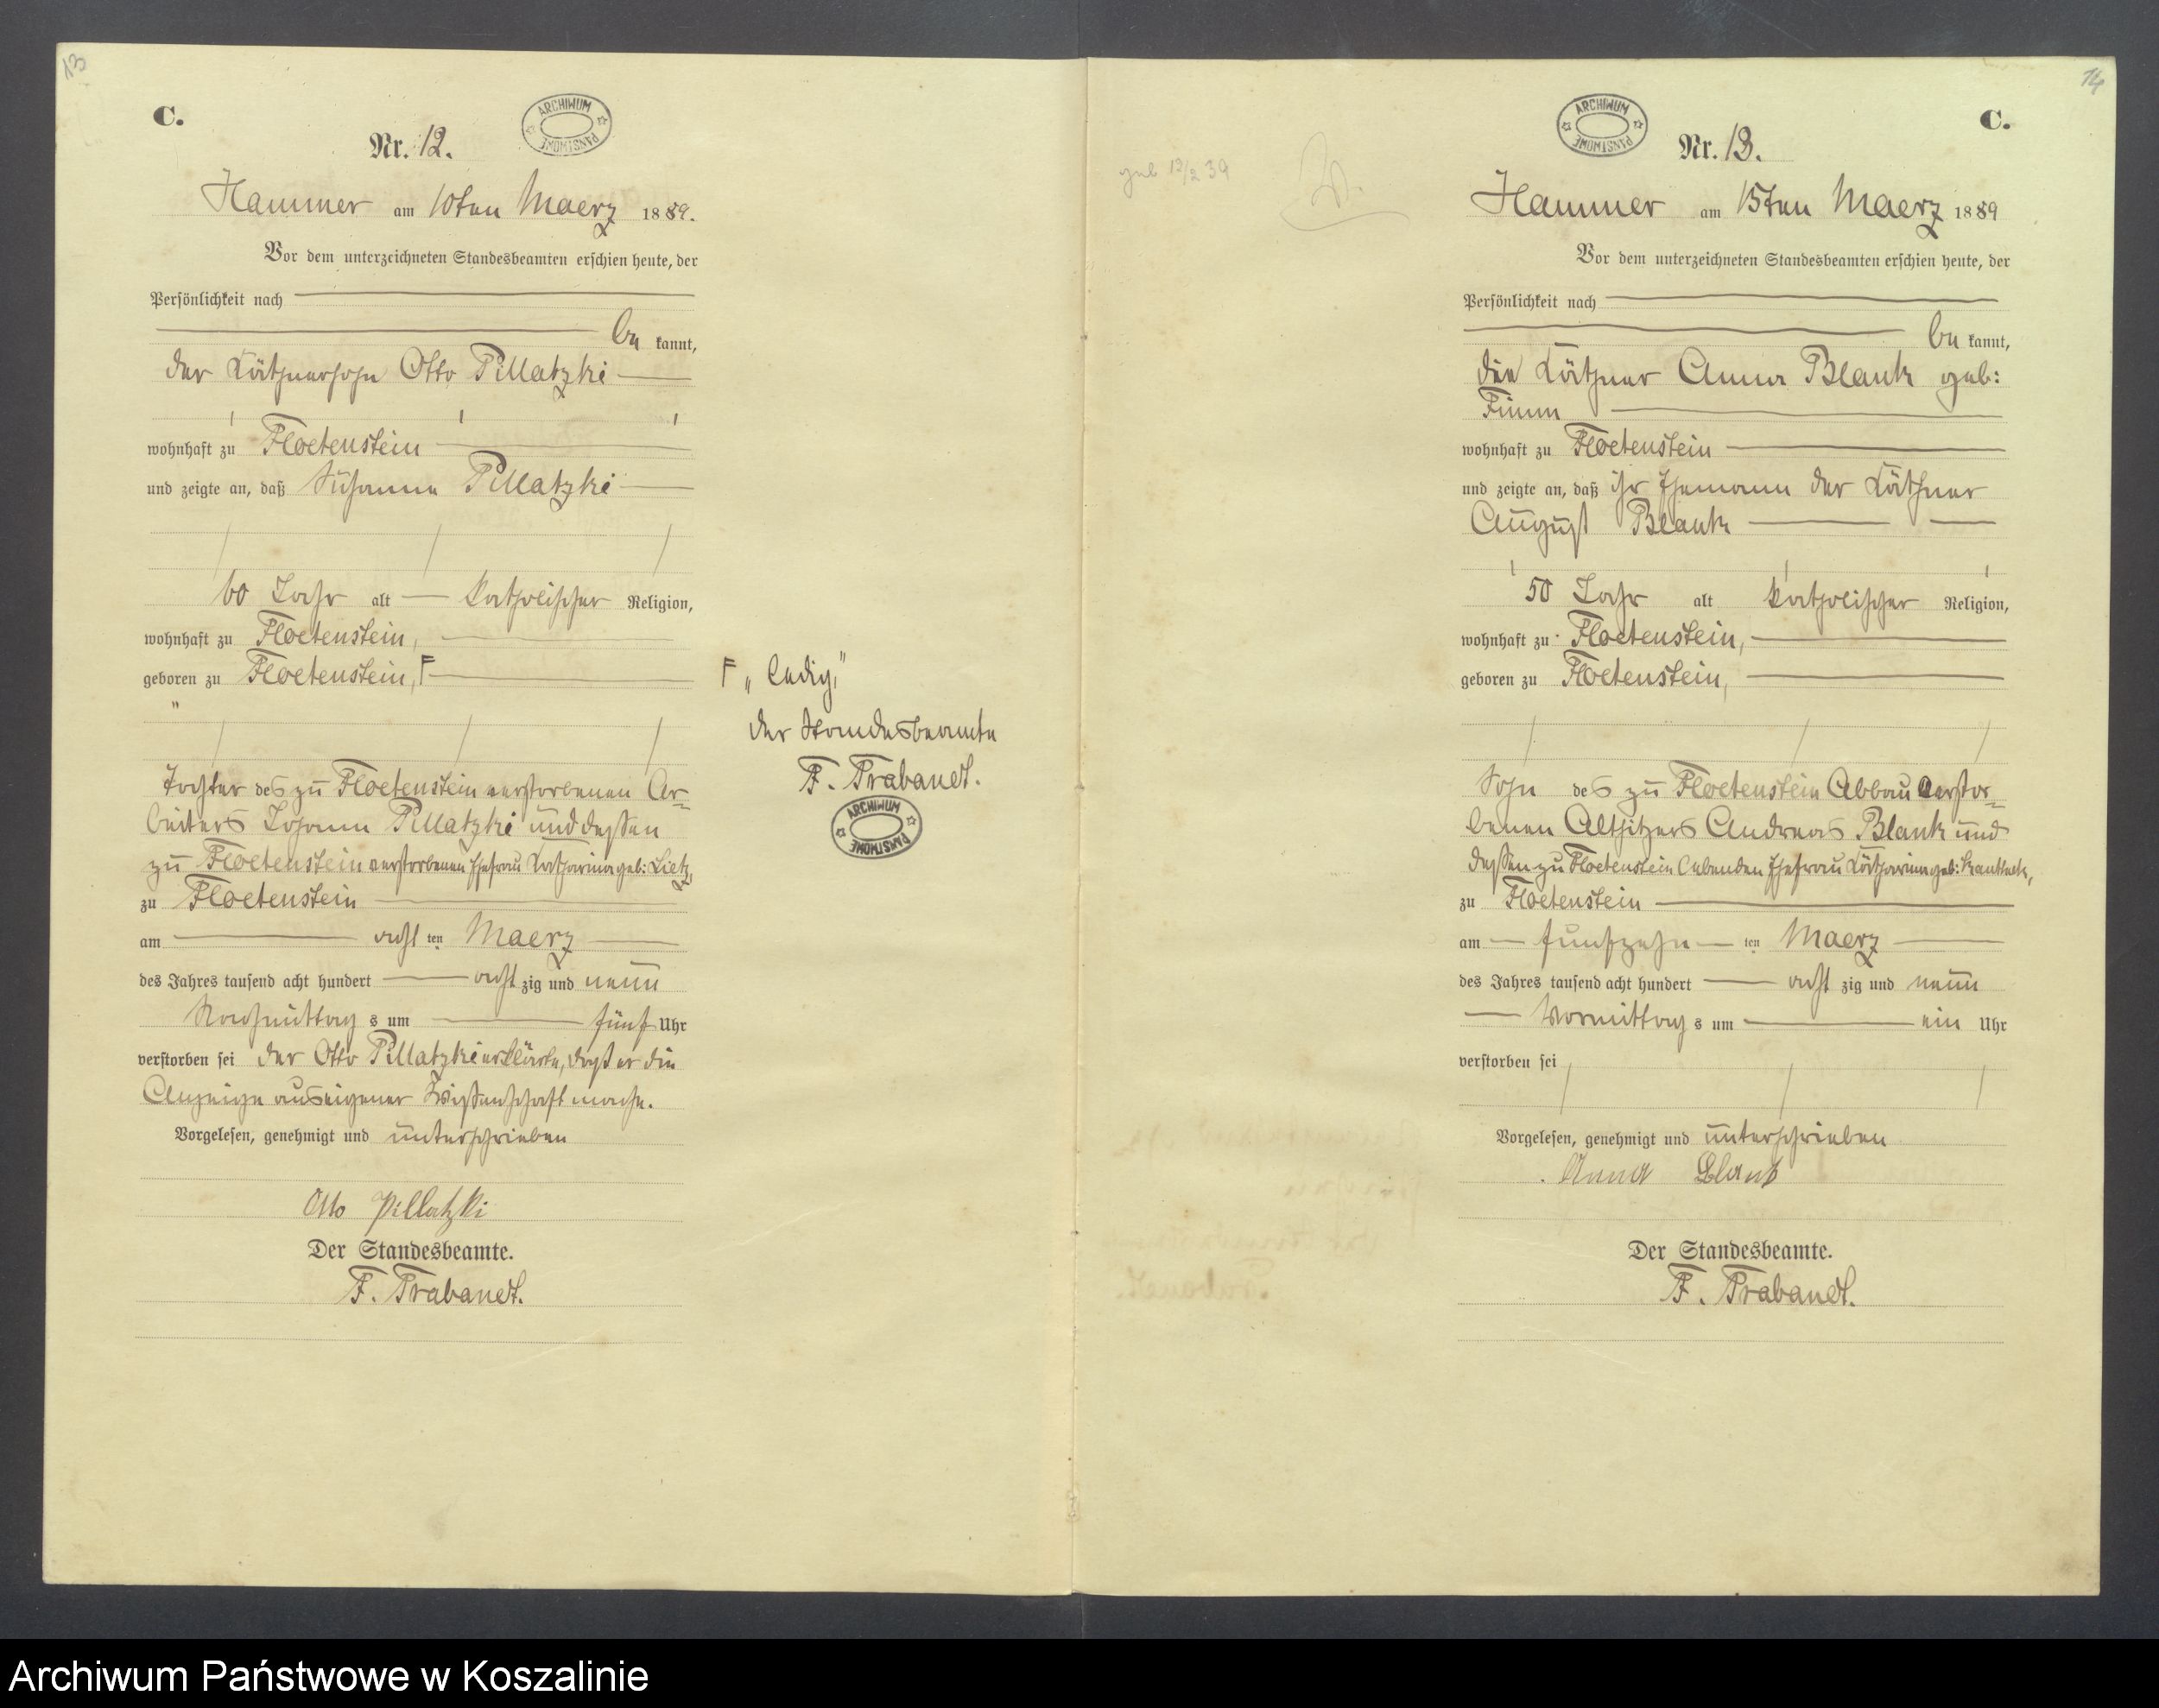 13
C.
ARCHIWUM PAŃSTWOWE
Nr. 12.
Hammer am 10ten Maerz 1889.
Vor dem unterzeichneten Standesbeamten erschien heute, der
Persönlichkeit nach
be kannt,
der Käthnersohn Otto Pillatzki
wohnhaft zu Floetenstein
und zeigte an, daß Susanna Pillatzki
60 Jahr alt katholischer Religion,
wohnhaft zu Floetenstein,
geboren zu Floetenstein, F
"
Tochter des zu Floetenstein verstorbenen Ar=
beiters Johann Pillatzki und dessen
zu Floetenstein verstorbenen Ehefrau Katharina geb: Lietz,
zu Floetenstein
am acht ten Maerz
des Jahres tausend acht hundert acht zig und neun
Nachmittag s um fünf Uhr
verstorben sei der Otto Pillatzki erklärte, daß er die
Anzeige aus eigener Wissenschaft mache.
Vorgelesen, genehmigt und unterschrieben
Otto Pillatzki
Der Standesbeamte.
F. Trabandt.
F „ledig,"
der Standesbeamte
F. Trabandt.
ARCHIWUM PAŃSTWOWE
14
C.
ARCHIWUM PAŃSTWOWE
geb 12/2 39
Nr. 13.
Hammer am 15ten Maerz 1889
Vor dem unterzeichneten Standesbeamten erschien heute, der
Persönlichkeit nach
be kannt,
die Käthner Anna Blank geb:
Finn
wohnhaft zu Floetenstein
und zeigte an, daß ihr Ehemann der Käthner
August Blank
50 Jahr alt katholischer Religion,
wohnhaft zu Floetenstein,
geboren zu Floetenstein,
Sohn des zu Floetenstein Abbau verstor=
benen Altsitzers Andreas Blank und
dessen zu Floetenstein lebenden Ehefrau Katharina geb:
zu Floetenstein
am fünfzehn ten Maerz
des Jahres tausend acht hundert acht zig und neun
Vormittag s um ein Uhr
verstorben sei
Vorgelesen, genehmigt und unterschrieben
Anna Blank
Der Standesbeamte.
F. Trabandt.
Archiwum Państwowe w Koszalinie